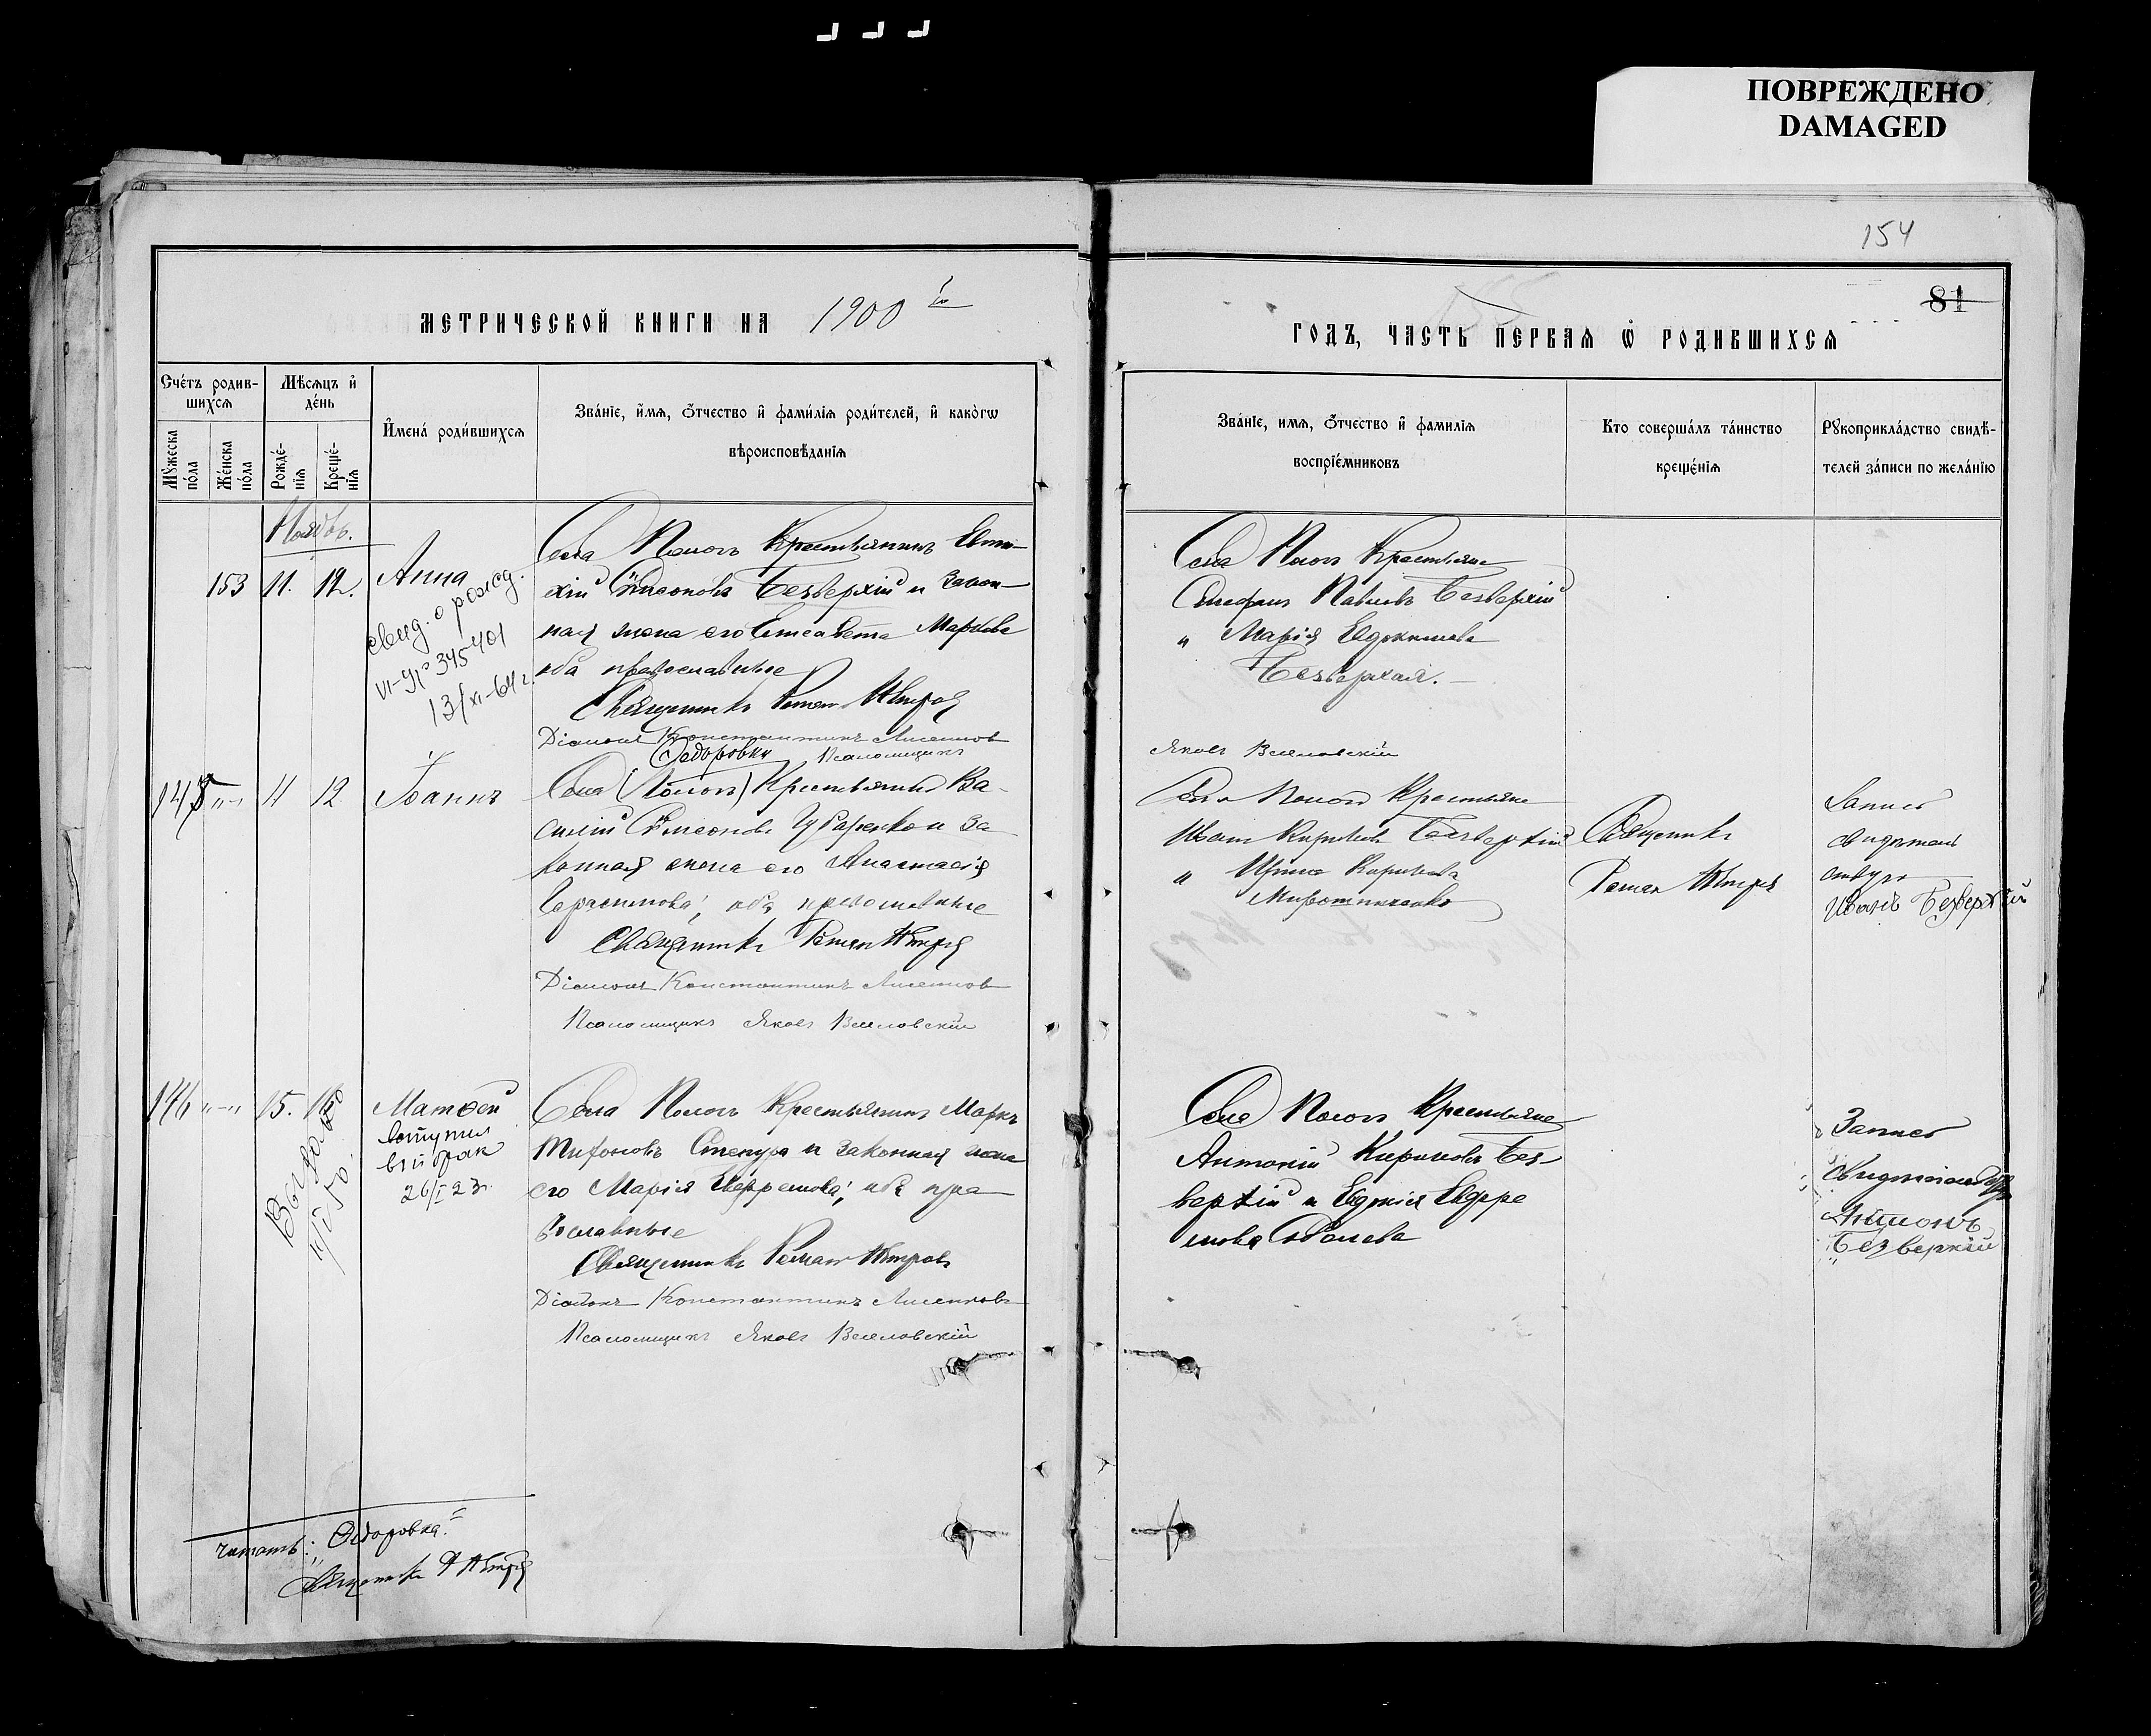 ПОВРЕЖДЕНО
DAMAGED
154
81
МЕТРИЧЕСКОЙ КНИГИ НА 1900 й
ГОДЪ, ЧАСТЬ ПЕРВАЯ Ѡ РОДИВШИХСЯ
Счетъ родив-
шихся
Мѣсяцъ и
день
Имена родившихся
Званіе, имя, отчество и фамилія родителей, и какогѡ
вѣроисповѣданія
Мужеска
пола
Женска
пола
Рожде-
нія
Креще-
нія
Званіе, имя, отчество и фамилія
воспріемниковъ
Кто совершалъ таинство
крещенія
Рукоприкладство свидѣ-
телей записи по желанію
Ноябрь.
153 11. 12. Анна
свид. о рожд.
VI- 345401
13/XI-64 г.
Села Пологъ Крестьянинъ Евти-
хій Симеоновъ Безверхій и закон-
ная жена его Елисавета Маркова
оба православные
Священникъ Романъ Петровъ
Діаконъ Константинъ
Псаломщикъ
Села Пологъ Крестьяне
Стефанъ Павловъ Безверхій
и Марія Евдокимова
Безверхая.
Яковъ Веселовскій
Ѳедоровки
145 "-" 11 12 Іоаннъ
Села (Пологъ) Крестьянинъ Ва-
силій Симеоновъ Губаренко и за-
конная жена его Анастасія
Герасимова, оба православные
Священникъ Романъ Петровъ
Діаконъ Константинъ
Псаломщикъ Яковъ Веселовскій
Села Пологъ Крестьяне
Иванъ Кириловъ Безверхій
и Ирина Кирилова
Мирошниченкова
Священникъ
Романъ Петровъ
Запись
Иванъ Безверхій
146 "-" 15. Матѳей
вступил
в брак
26/I 23 г.
Выдано
11/I 50.
Села Пологъ Крестьянинъ Маркъ
Тихоновъ Стенура и законная жена
его Марія Евфремова, оба пра-
вославные
Священникъ Романъ Петровъ
Діаконъ Константинъ
Псаломщикъ Яковъ Веселовскій
Села Пологъ Крестьяне
Антоній Кириловъ Без-
верхій и
Запись
Антонъ
Безверхій
читать: „Ѳедоровка"
Священникъ Р Петровъ